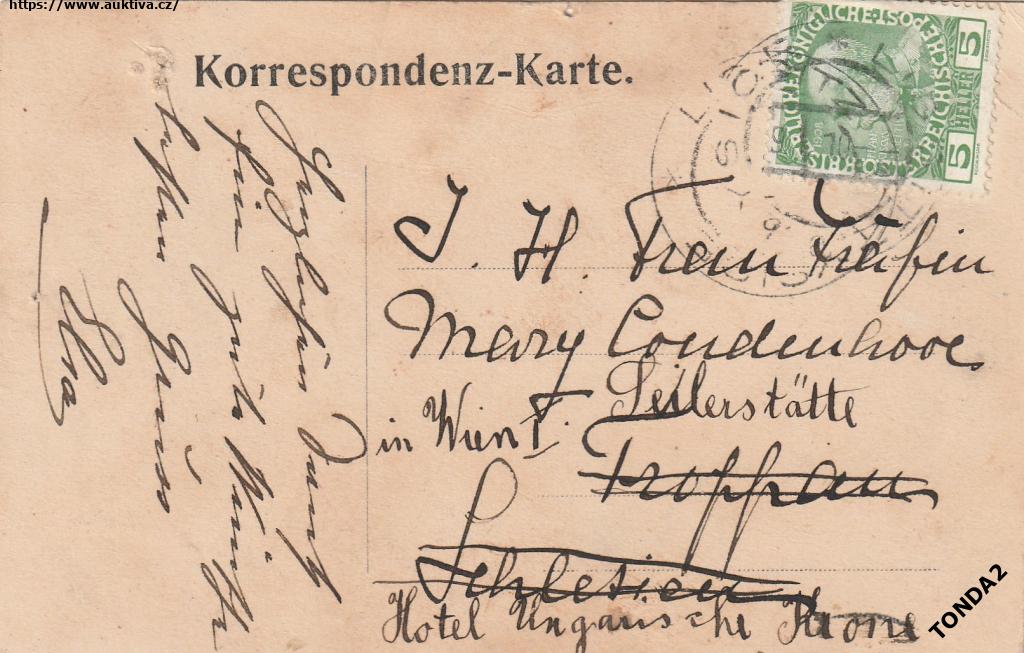 https://www.auktiva.cz/
Korrespondenz-Karte.
Herzlichen Dank
für gute Wünsche
besten Gruss
Ela
I. H. Frau Gräfin
Mary Coudenhove
in Wien I. Seilerstätte
Troppau
Schlesien
Hotel Ungarische Krone
5
5
HELLER
1908
TONDA2